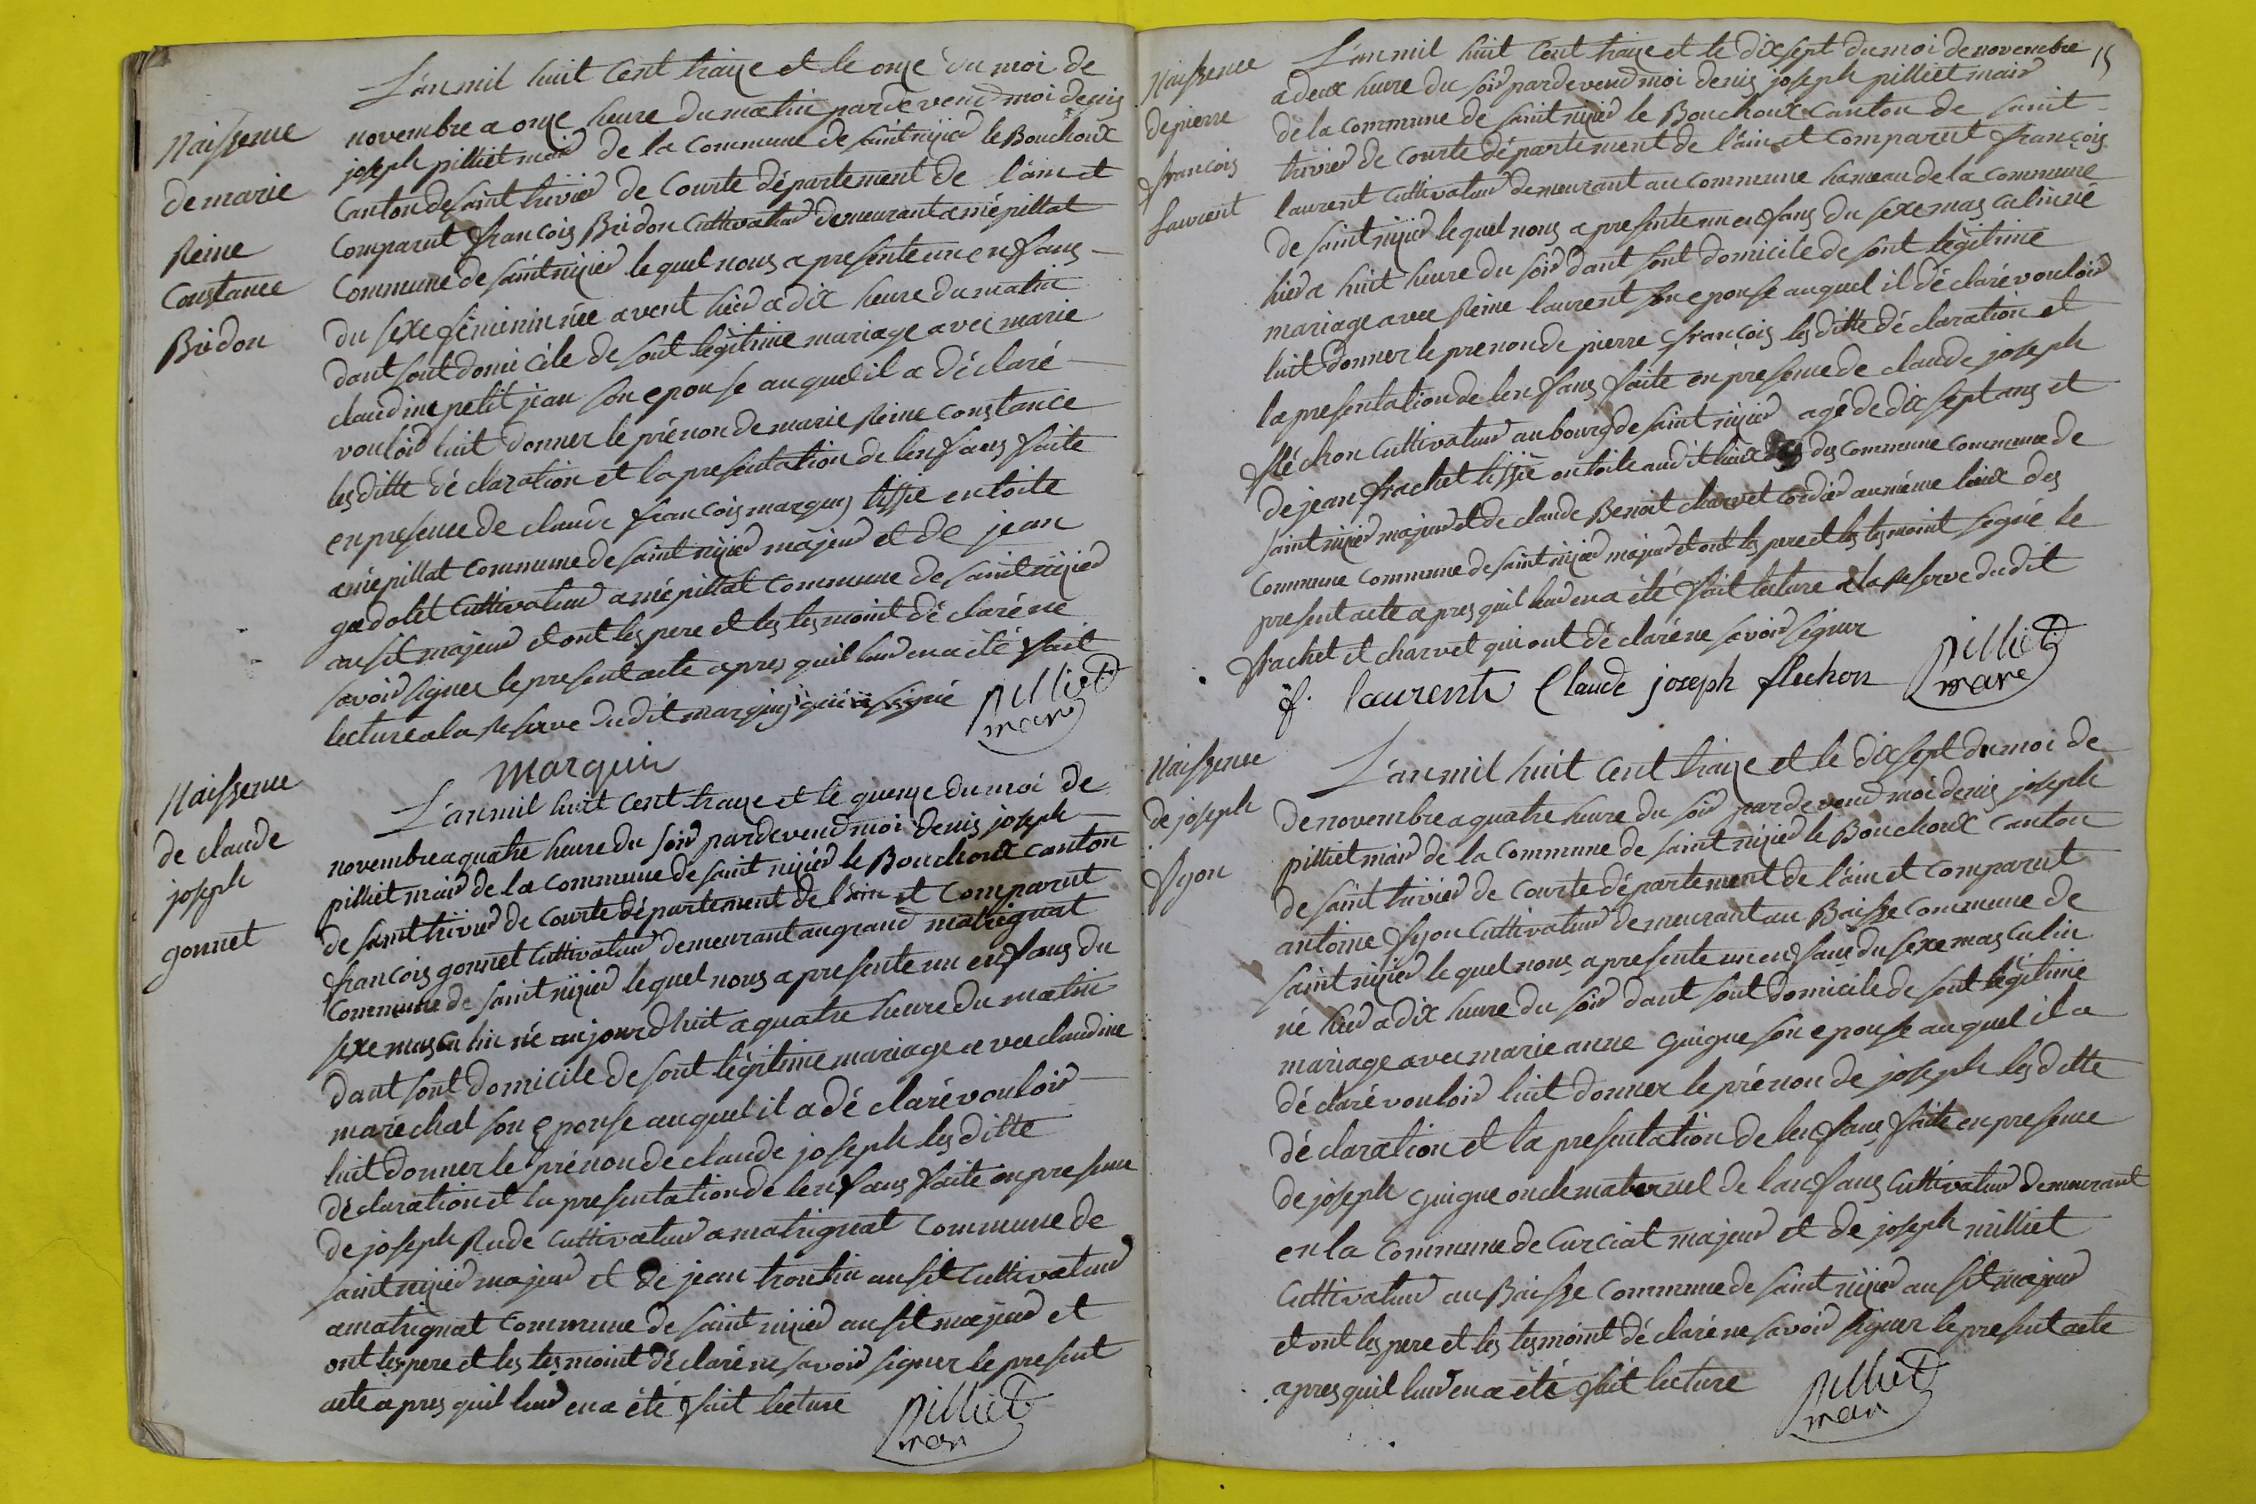 L'an mil huit Cent traize et le onze du moi de
Naissence
de marie
Reine
Constance
Bridon
novembre a onze heure du matin pardevend moi denis
joseph pilliet mair de la Commune de saint nizier le Bouchoux
Canton de saint trivier de Courte département de l'ain et
Comparut francois Bridon Cultivateur demeurant a mépillat
Commune de saint nizier lequel nous a presente un enfans
du sexe féminin née avent hier a dix heure du matin
dant sont domicile de sont legitime mariage avec marie
claudine petit jean son epouse auquel il a déclaré
vouloir luit donner le prénon de marie Reine constance
les ditte déclaration et la presentation de lenfans faite
en presence de claude francois marquis tissie en toile
a mépillat Commune de saint nizier majeur et de jean
gadolet Cultivateur a mépillat Commune de saint nizier
ausit majeur et ont les pere et les tesmoint déclaré ne
savoir signer le present acte apres quil leur en a été fait
lecture a la Reserve dudit marquis qui a signé
pilliet
mair
Marquis
Naissence
de claude
joseph
gonnet
L'an mil huit Cent traze et le quenze du moi de
novembre a quatre heure du soir pardevend moi denis joseph
pilliet mair de la Commune de saint nizier le Bouchoux Canton
de saint trivier de Courte département de l'ain et Comparut
francois gonnet Cultivateur demeurant au grand matrignat
Commune de saint nizier lequel nous a presente un enfans du
sexe masculin né aujourdhuit a quatre heure du matin
dant sont domicile de sont légitime mariage avec claudine
maréchal son epouse auquel il a déclaré vouloir
luit donner le prénon de claude joseph les ditte
déclaration et la presentation de lenfans faite en presence
de joseph Rude Cultivateur a matrignat Commune de
saint nizier majeur et de jean trontin ausit Cultivateur
a matrignat Commune de saint nizier ausit majeur et
ont les pere et les tesmoint déclaré ne savoir signer le present
acte apres quil leur en a été fait lecture
pilliet
mair
15
Naissence
de pierre
francois
Laurent
L'an mil huit Cent traize et le dix sept du moi de novembre
a deux heure du soir pardevend moi denis joseph pilliet mair
de la Commune de saint nizier le Bouchoux Canton de saint
trivier de Courte département de l'ain et Comparut françois
laurent Cultivateur demeurant au Commune hameau de la Commune
de saint nizier lequel nous a presente un enfans du sexe masculin né
hier a huit heure du soir dant sont domicile de sont légitime
mariage avec Reine laurent son epouse auquel il déclaré vouloir
luit donner le prenon de pierre françois les ditte déclaration et
la presentation de lenfans faite en presence de claude joseph
fléchon Cultivateur au bourg de saint nizier agé de dix sept ans et
de jean frachet tissie en toile audit lieux des Commune Commune de
saint nizier majeur et de claude Benoit charvet Cordier au même lieux des
Commune Commune de saint nizier majeur et ont les pere et les tesmoint signé le
present acte apres quil leur en a été fait lecture a la Reserve dudit
frachet et charvet qui ont déclaré ne savoir signer
f. laurent Claude joseph flechon
pilliet
mare
Naissence
de joseph
fyon
L'an mil huit Cent traize et le dix sept du moi de
de novembre a quatre heure du soir pardevend moi denis joseph
pilliet mair de la Commune de saint nizier le Bouchoux Canton
de saint trivier de Courte département de l'ain et Comparut
antoine fyon Cultivateur demeurant au Baisse Commune de
saint nizier lequel nous a presente un enfans du sexe masculin
né hier a dix heure du soir dant sont domicile de sont légitime
mariage avec marie anne guigue son epouse auquel il a
déclaré vouloir luit donner le prénon de joseph les ditte
déclaration et la presentation de lenfans faite en presence
de joseph guigue oncle maternel de lanfans Cultivateur demeurant
en la Commune de Curciat majeur et de joseph milliet
Cultivateur au Baisse Commune de saint nizier ausit majeur
et ont les pere et les tesmoint déclaré ne savoir signer le present acte
apres quil leur en a été fait lecture
pilliet
mair